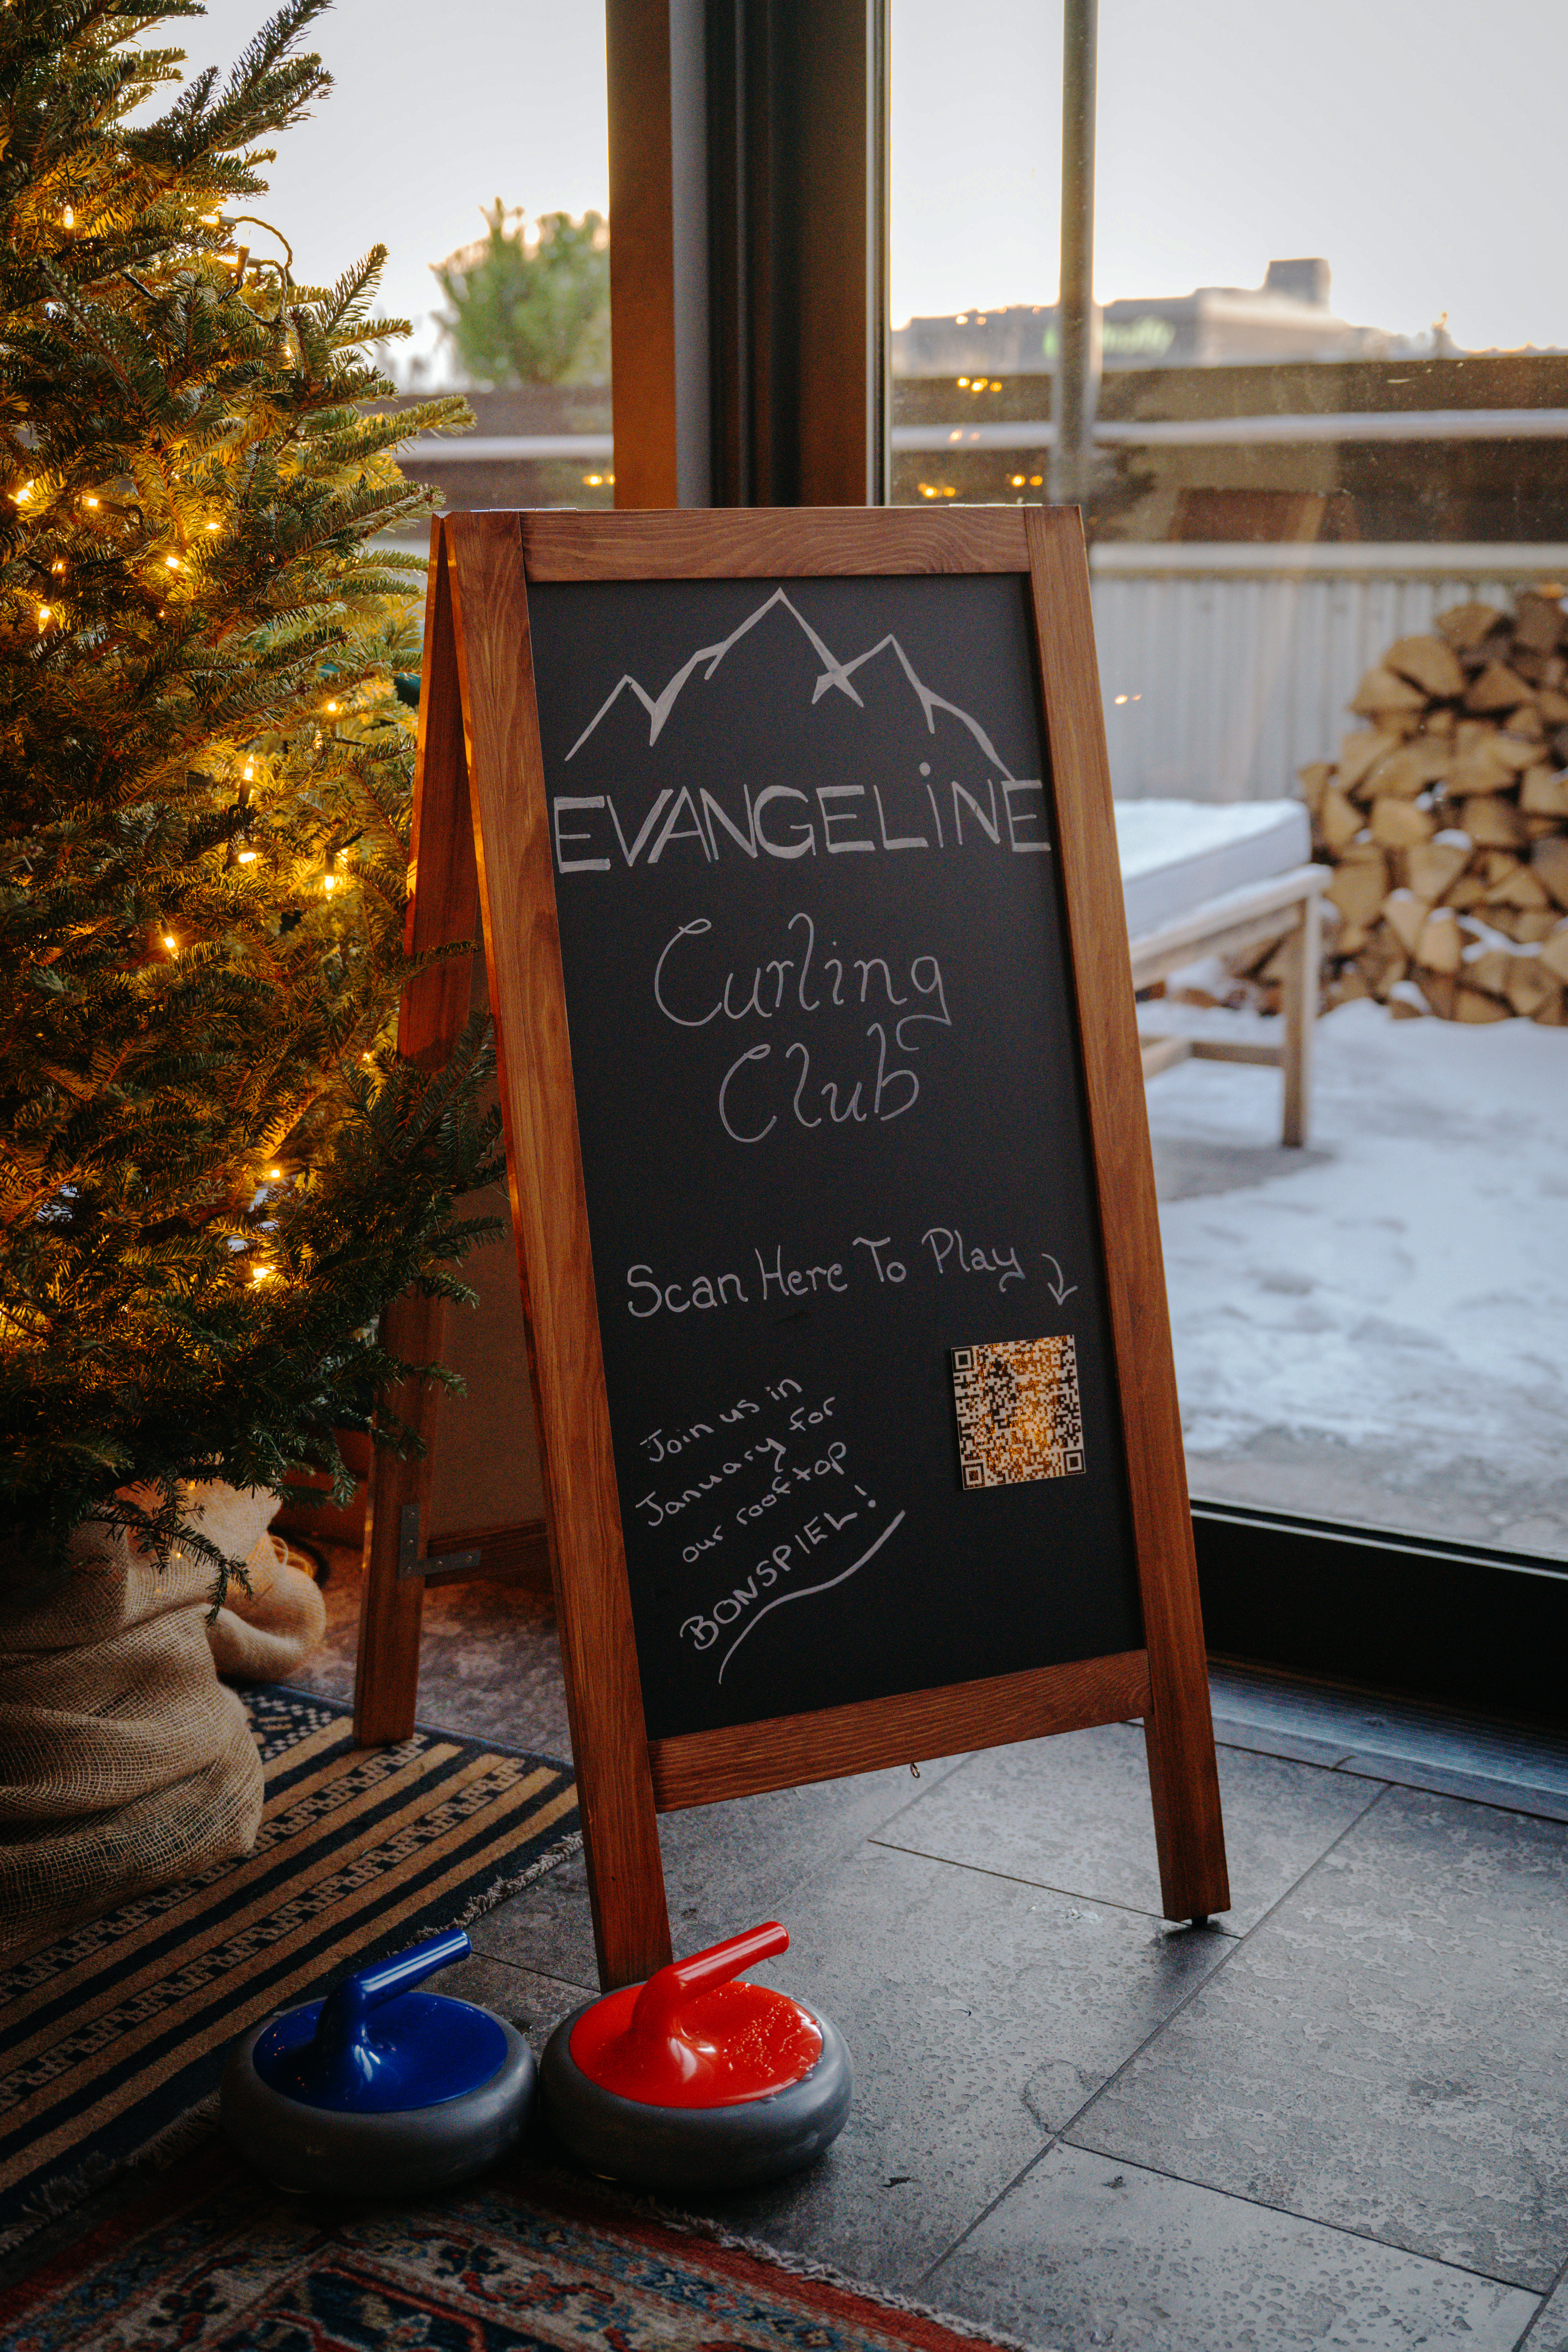 EVANGELiNE
Curling
Club
Scan Here To Play
Join us in
January for
our rooftop
BONSPIEL!